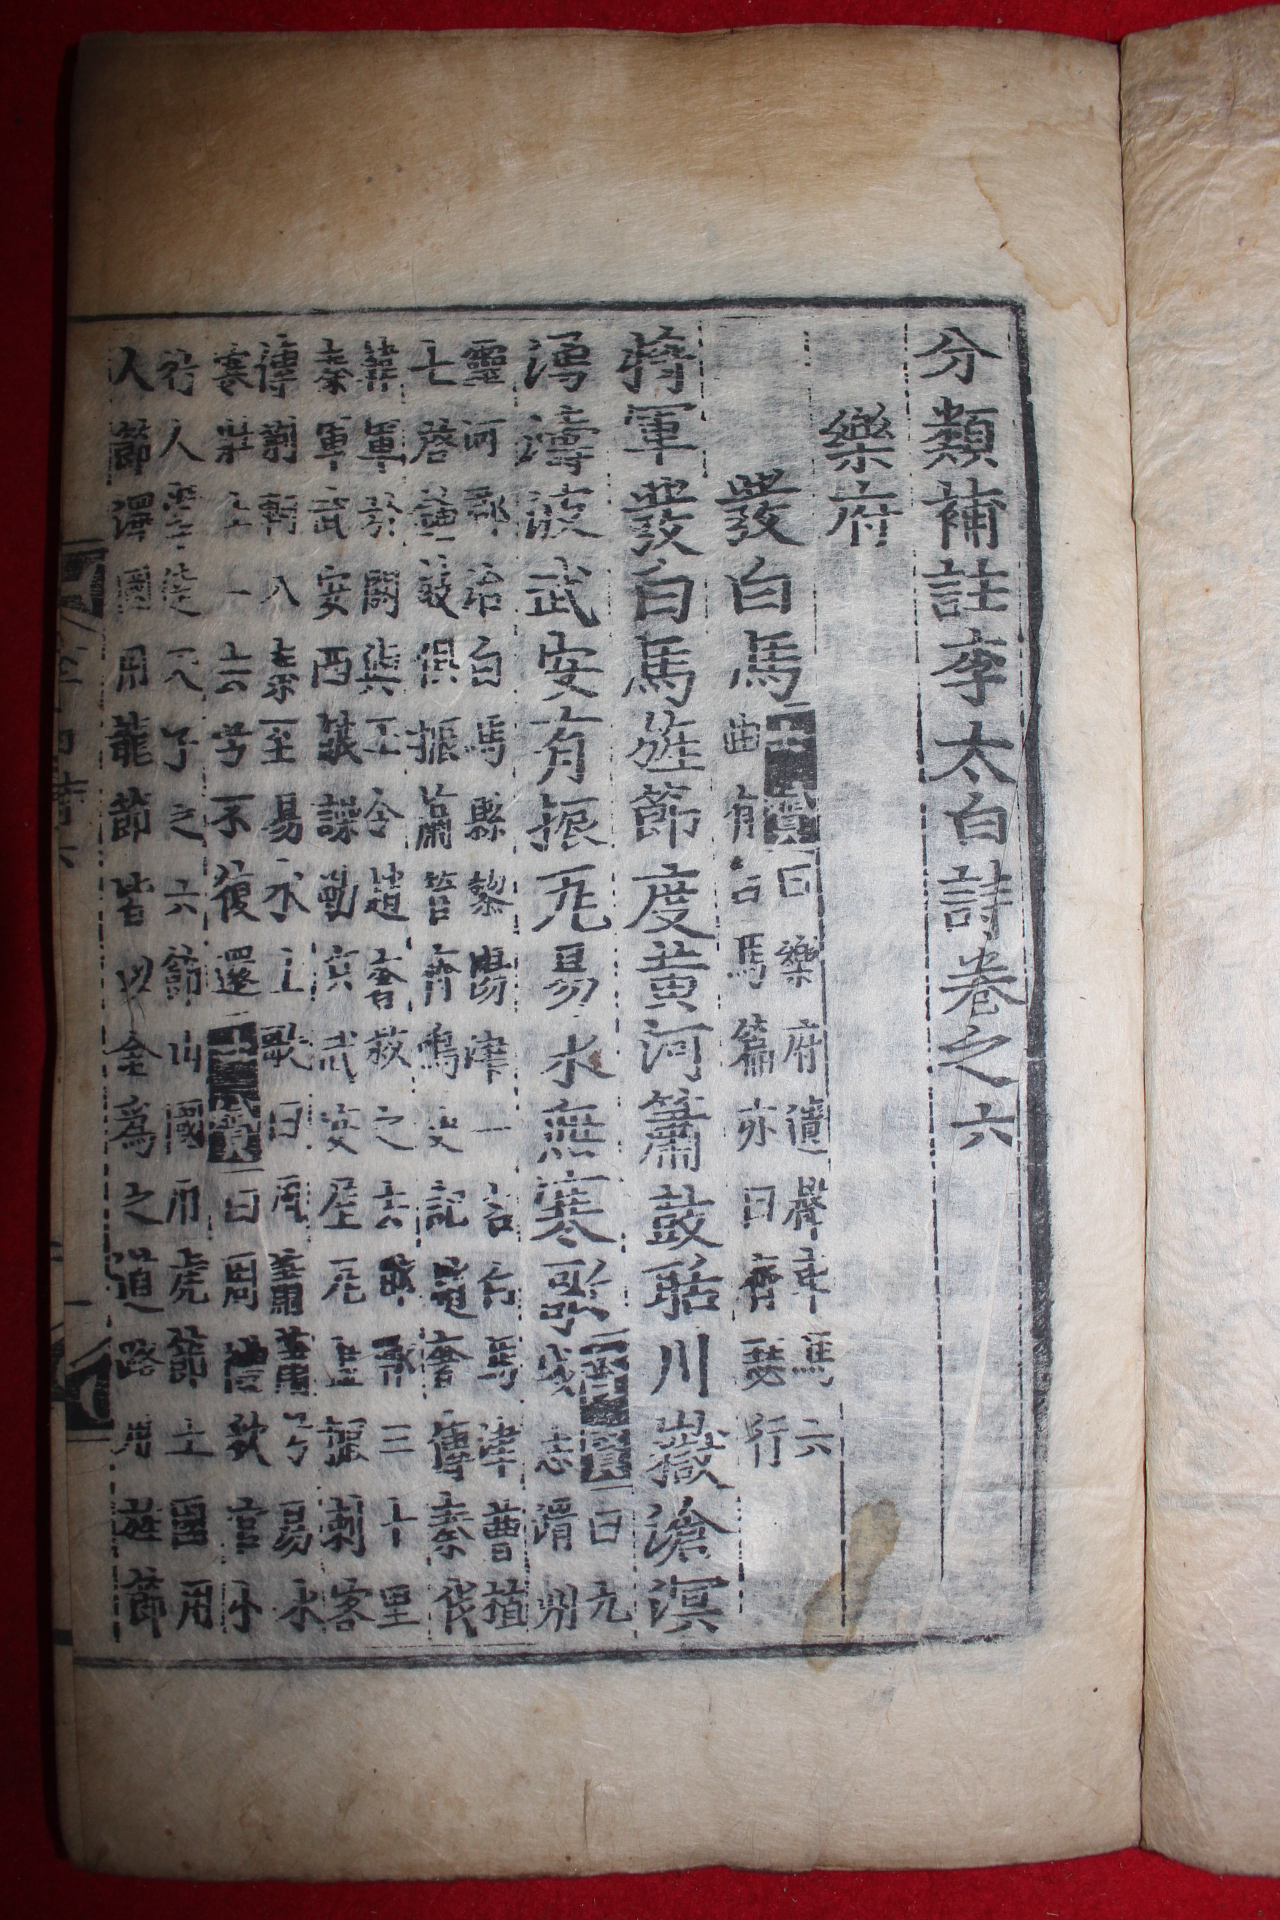 分類補註李太白詩卷之六
樂府
發白馬
士贇曰樂府遺聲車馬六
曲有白馬篇亦曰齊瑟行
將軍發白馬旌節度黃河簫鼓聒川嶽滄溟
湧濤波武安有振瓦易水無寒歌
齊賢曰元
志滑州
靈河郡治白馬縣黎陽津一名白馬津曹植
七啓鍾鼓俱振簫管齊鳴史記趙奢傳秦伐
韓軍於閼與王令趙奢救之去邯鄲三十里
秦軍武安西鼓譟勒兵武安屋瓦盡振刺客
傳荊軻入秦至易水上歌曰風蕭蕭兮易水
寒壯士一去兮不復還士贇曰周禮秋官小
行人掌達天下之六節山國用虎節土國用
人節澤國用龍節皆以金爲之道路用旌節